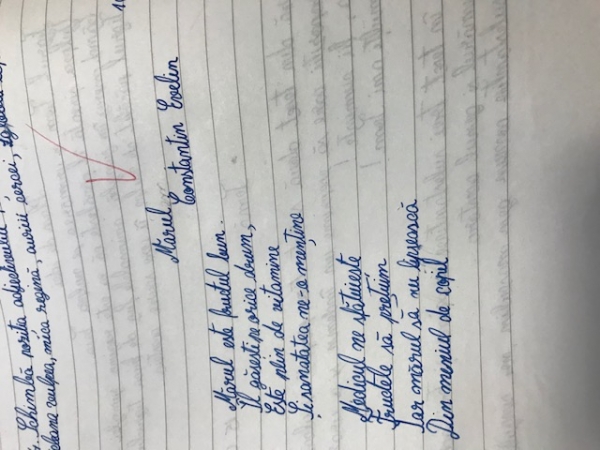 4. Schimbă poziția adjectivului
vicleana vulpea, mica regină, aurii cercei,
Mărul
Constantin Evelin
Mărul este fructul bun.
Îl găsești pe orice drum,
Este plin de vitamine
Și sănătatea ne-o menține;
Medicul ne sfătuiește
Fructele să prețuim
Iar mărul să nu lipsească
Din meniul de copil.